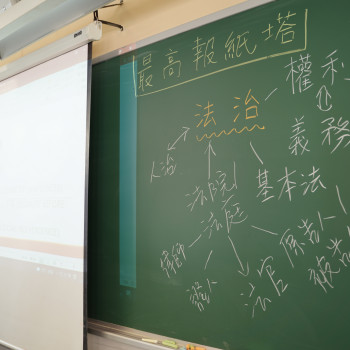 最高報紙塔
法治
權利
義務
人治
法院
法庭
基本法
律師
原告人
被告
證人
法官